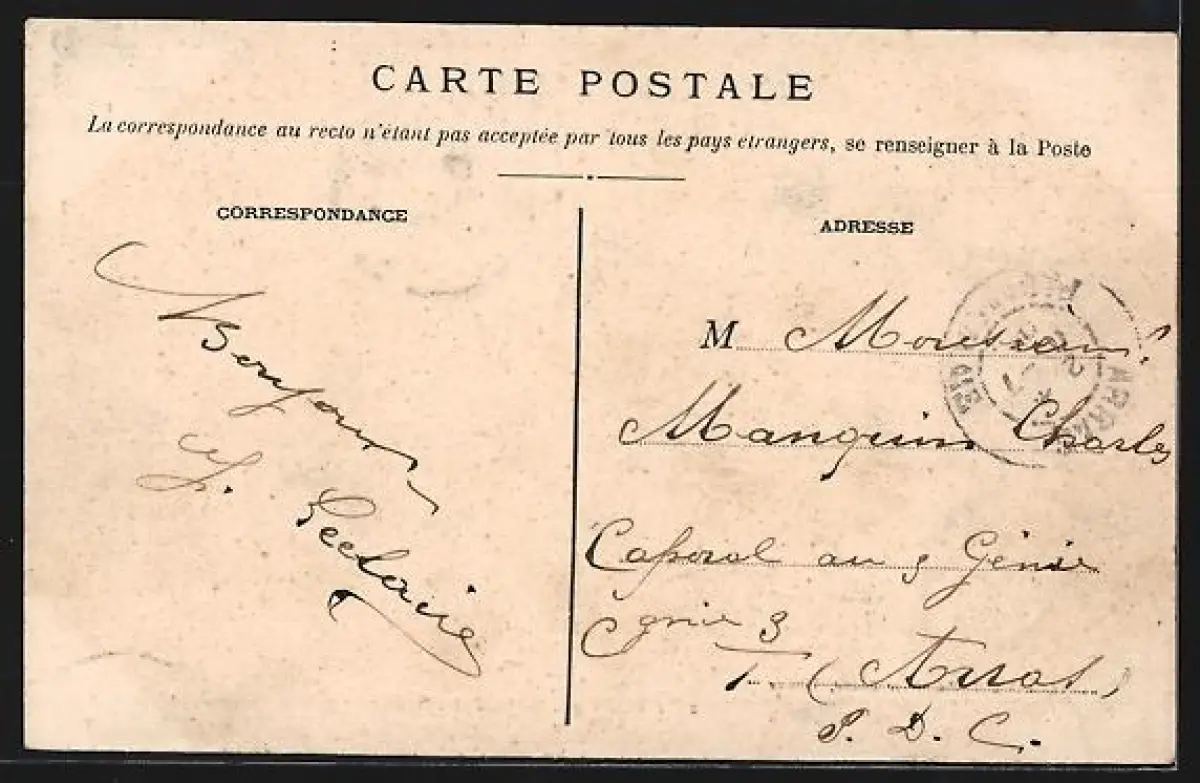 CARTE POSTALE
La correspondance au recto n'étant pas acceptée par tous les pays etrangers, se renseigner à la Poste
CORRESPONDANCE
Bonjour
L. Leclaire
ADRESSE
M Monsieur
Manquin Charles
Caporal au 3 Génie
Cgnie 3
T. (Arras)
P. D. C.
ARRAS